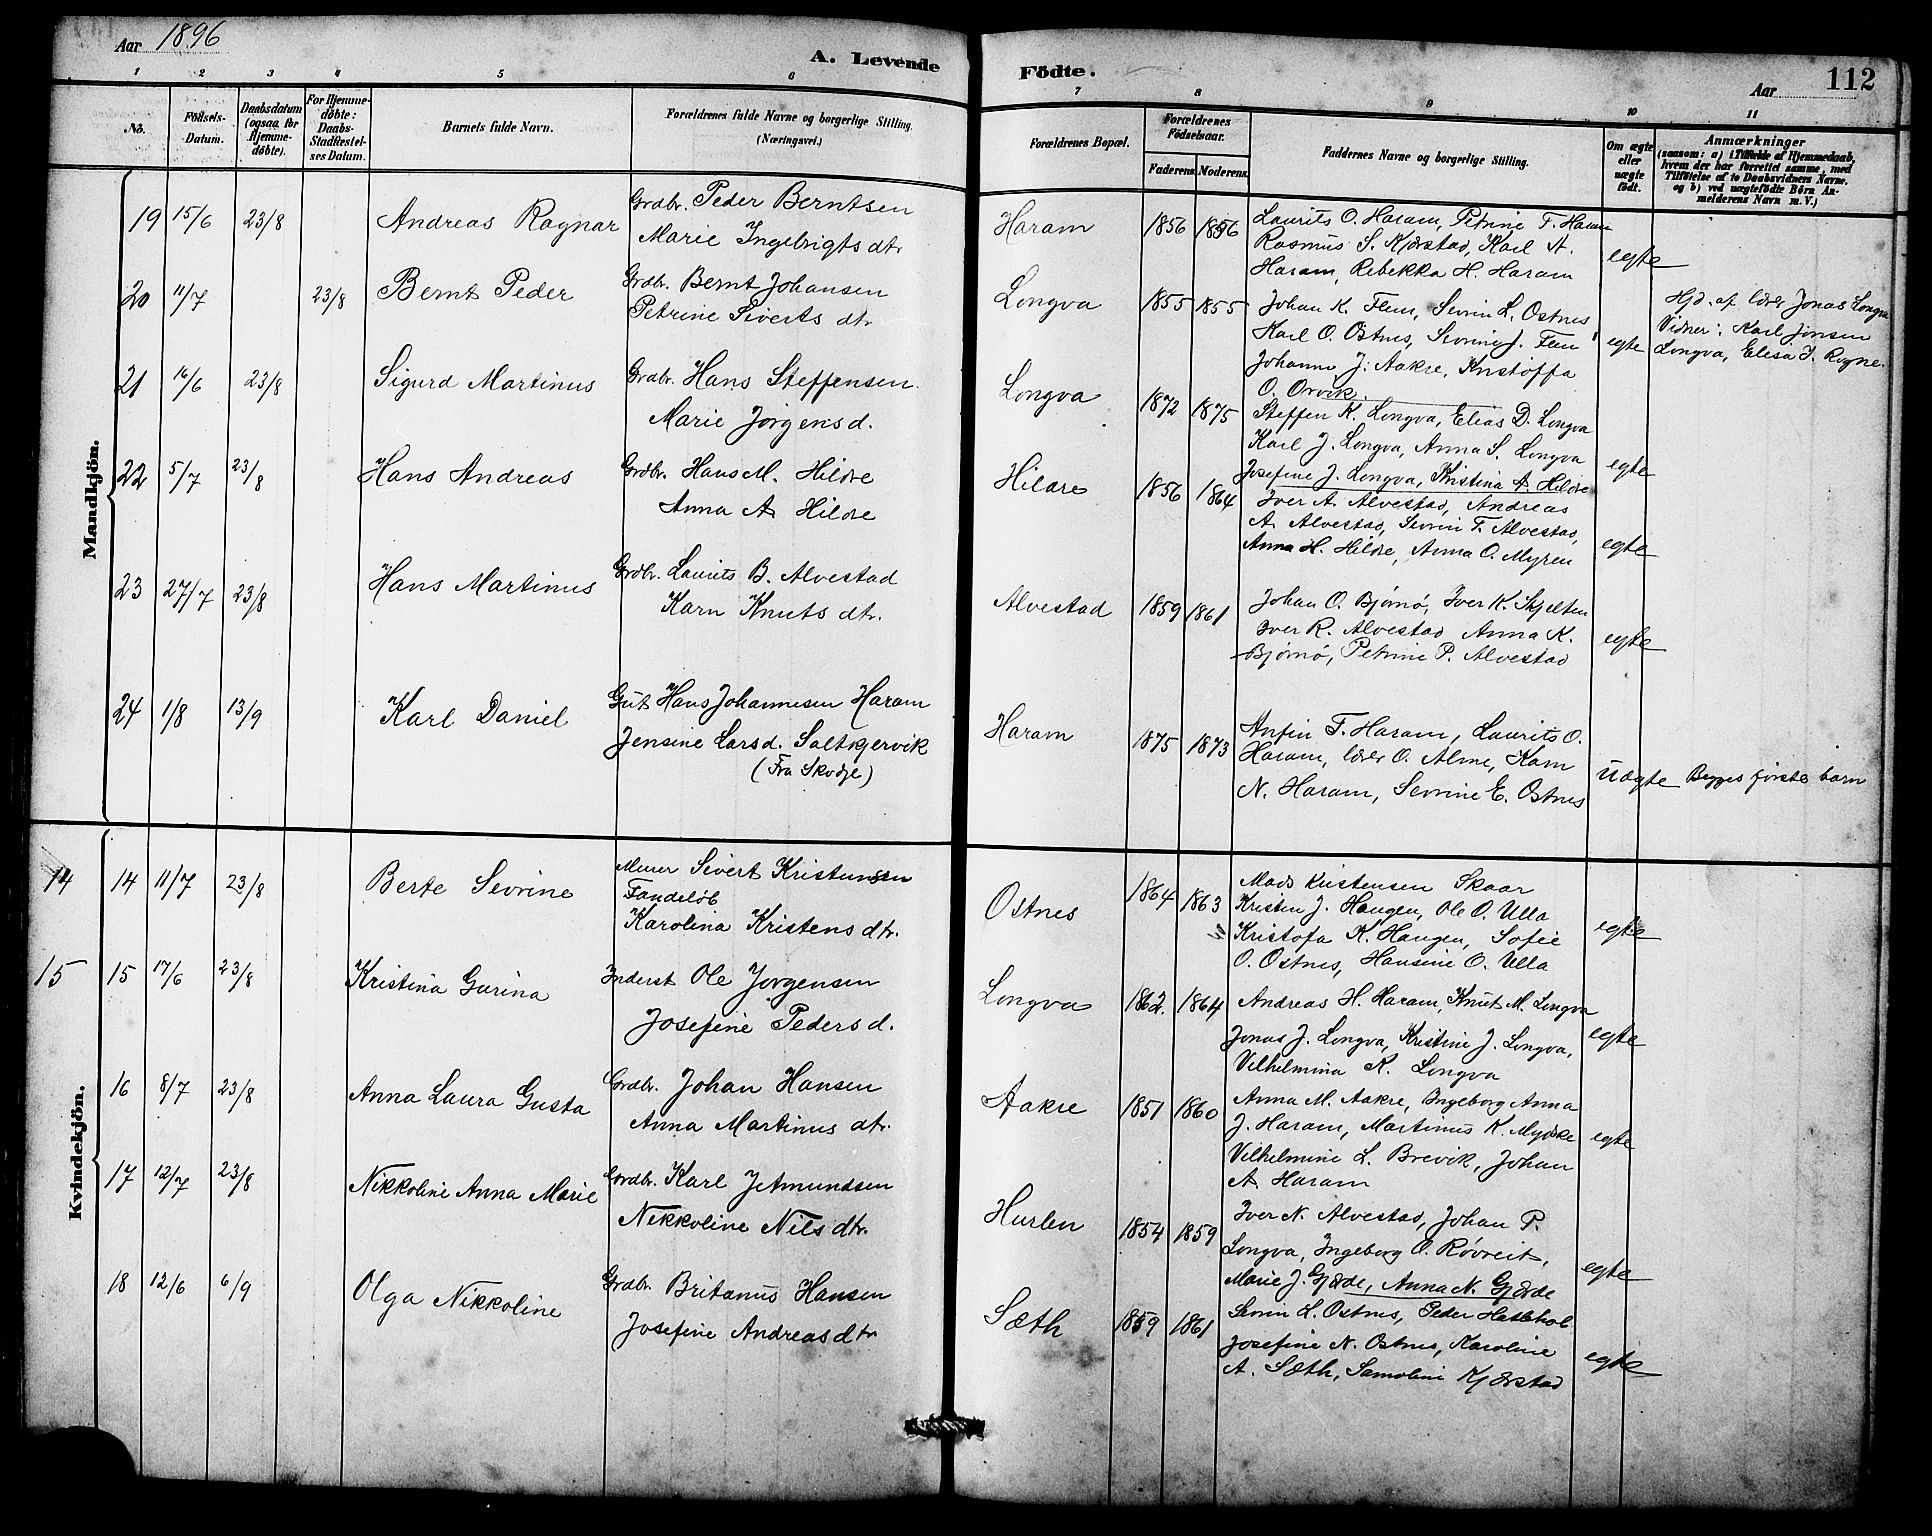 Aar 1896
A. Levende Födte.
Aar
112
1 2 3 4 5 6 7 8 9 10 11
No.
Födsels-
Datum.
Daabsdatum
(ogsaa for
Hjemme-
döbte).
For Hjemme-
döbte:
Daabs-
Stadfæstel-
ses Datum.
Barnets fulde Navn.
Forældrenes fulde Navne og borgerlige Stilling.
(Næringsvei.)
Forældrenes Bopæl.
Forældrenes
Födselsaar.
Faderens. Moderens.
Faddernes Navne og borgerlige Stilling.
Om ægte
eller
uægte
födt.
Anmærkninger
(saasom: a) i Tilfælde af Hjemmedaab,
hvem der har forrettet samme, med
Tilföielse af to Daabsvidners Navne.
og b) ved uægtefödte Börn An-
melderens Navn m. V.)
Mandkjön.
19 15/6 23/8 Andreas Ragnar
Grdbr. Peder Berntsen
Marie Ingebrigts dtr.
Haram 1856 1856
Laurits O. Haram, Petrine F. Haram
Rasmus S. Kjærstad, Karl A.
Haram, Rebekka H. Haram
egte
20 11/7 23/8 Bernt Peder
Grdbr. Bernt Johansen
Petrine Siverts dtr.
Longva 1855 1855
Johan K. Flem, Sevrin L. Ostnes
Karl O. Ostnes, Sevrine J. Flem
Johanne J. Aakre, Kristoffa
O. Orvik.
egte
Hjd. af lærer Jonas Longva
Vidner: Karl Jonsen
Longva, Elisa J. Rogne.
21 16/6 23/8 Sigurd Martinus
Grdbr. Hans Steffensen
Marie Jørgens d.
Longva 1872 1875
Steffen K. Longva, Elias D. Longva
Karl J. Longva, Anna S. Longva
Josefine J. Longva, Kristina A. Hildre
egte
22 5/7 23/8 Hans Andreas
Grdbr. Hans M. Hildre
Anna A. Hildre
Hildre 1856 1864
Iver A. Alvestad, Andreas
A. Alvestad, Sevrin F. Alvestad,
Anna H. Hildre, Anna O. Myren
egte
23 27/7 23/8 Hans Martinus
Grdbr. Laurits B. Alvestad
Karn Knuts dtr.
Alvestad 1859 1861
Johan O. Bjørnø, Iver K. Skjelten
Iver R. Alvestad Anna K.
Bjørnø, Petrine P. Alvestad
egte
24 1/8 13/9 Karl Daniel
Gut Hans Johannesen Haram
Jensine Lars d. Saltkjervik
(Fra Skodje)
Haram 1875 1873
Anfin F. Haram, Laurits O.
Haram, lærer O. Alme, Karn
N. Haram, Sevrine E. Ostnes
uægte
Begges første barn
Kvindekjön.
14 14 11/7 23/8 Berte Sevrine
Murer Sivert Kristensen
Karolina Kristens dtr.
Ostnes 1864 1863
Mads Kristensen Skaar
Kristen J. Haugen, Ole O. Ulla
Kristofa K. Haugen, Sofie
O. Ostnes, Hansine O. Ulla
egte
15 15 17/6 23/8 Kristina Gurina
Inderst Ole Jørgensen
Josefine Peders d.
Longva 1862. 1864
Andreas H. Haram, Knut M. Longva
Jonas J. Longva, Kristine J. Longva,
Vilhelmina K. Longva
egte
16 8/7 23/8 Anna Laura Gusta
Grdbr. Johan Hansen
Anna Martinus dtr.
Aakre 1851 1860
Anna M. Aakre, Ingeborg Anna
J. Haram, Martinus K. Myrske
Vilhelmine L. Brevik, Johan
A. Haram
egte
17 12/7 23/8 Nikkoline Anna Marie
Grdbr. Karl J. Amundsen
Nikkoline Nils dtr.
Hurlen 1854 1859
Iver N. Alvestad, Johan P.
Longva, Ingeborg O. Røvreit,
Marie J. Gjærde, Anna N. Gjærde
egte
18 12/6 6/9 Olga Nikkoline
Grdbr. Britanus Hansen
Josefine Andreas dtr
Sæth 1859 1861
Sevrin L. Ostnes, Peder Hatlehol
Josefine N. Ostnes, Karoline
A. Sæth, Samoline Kjærstad
egte